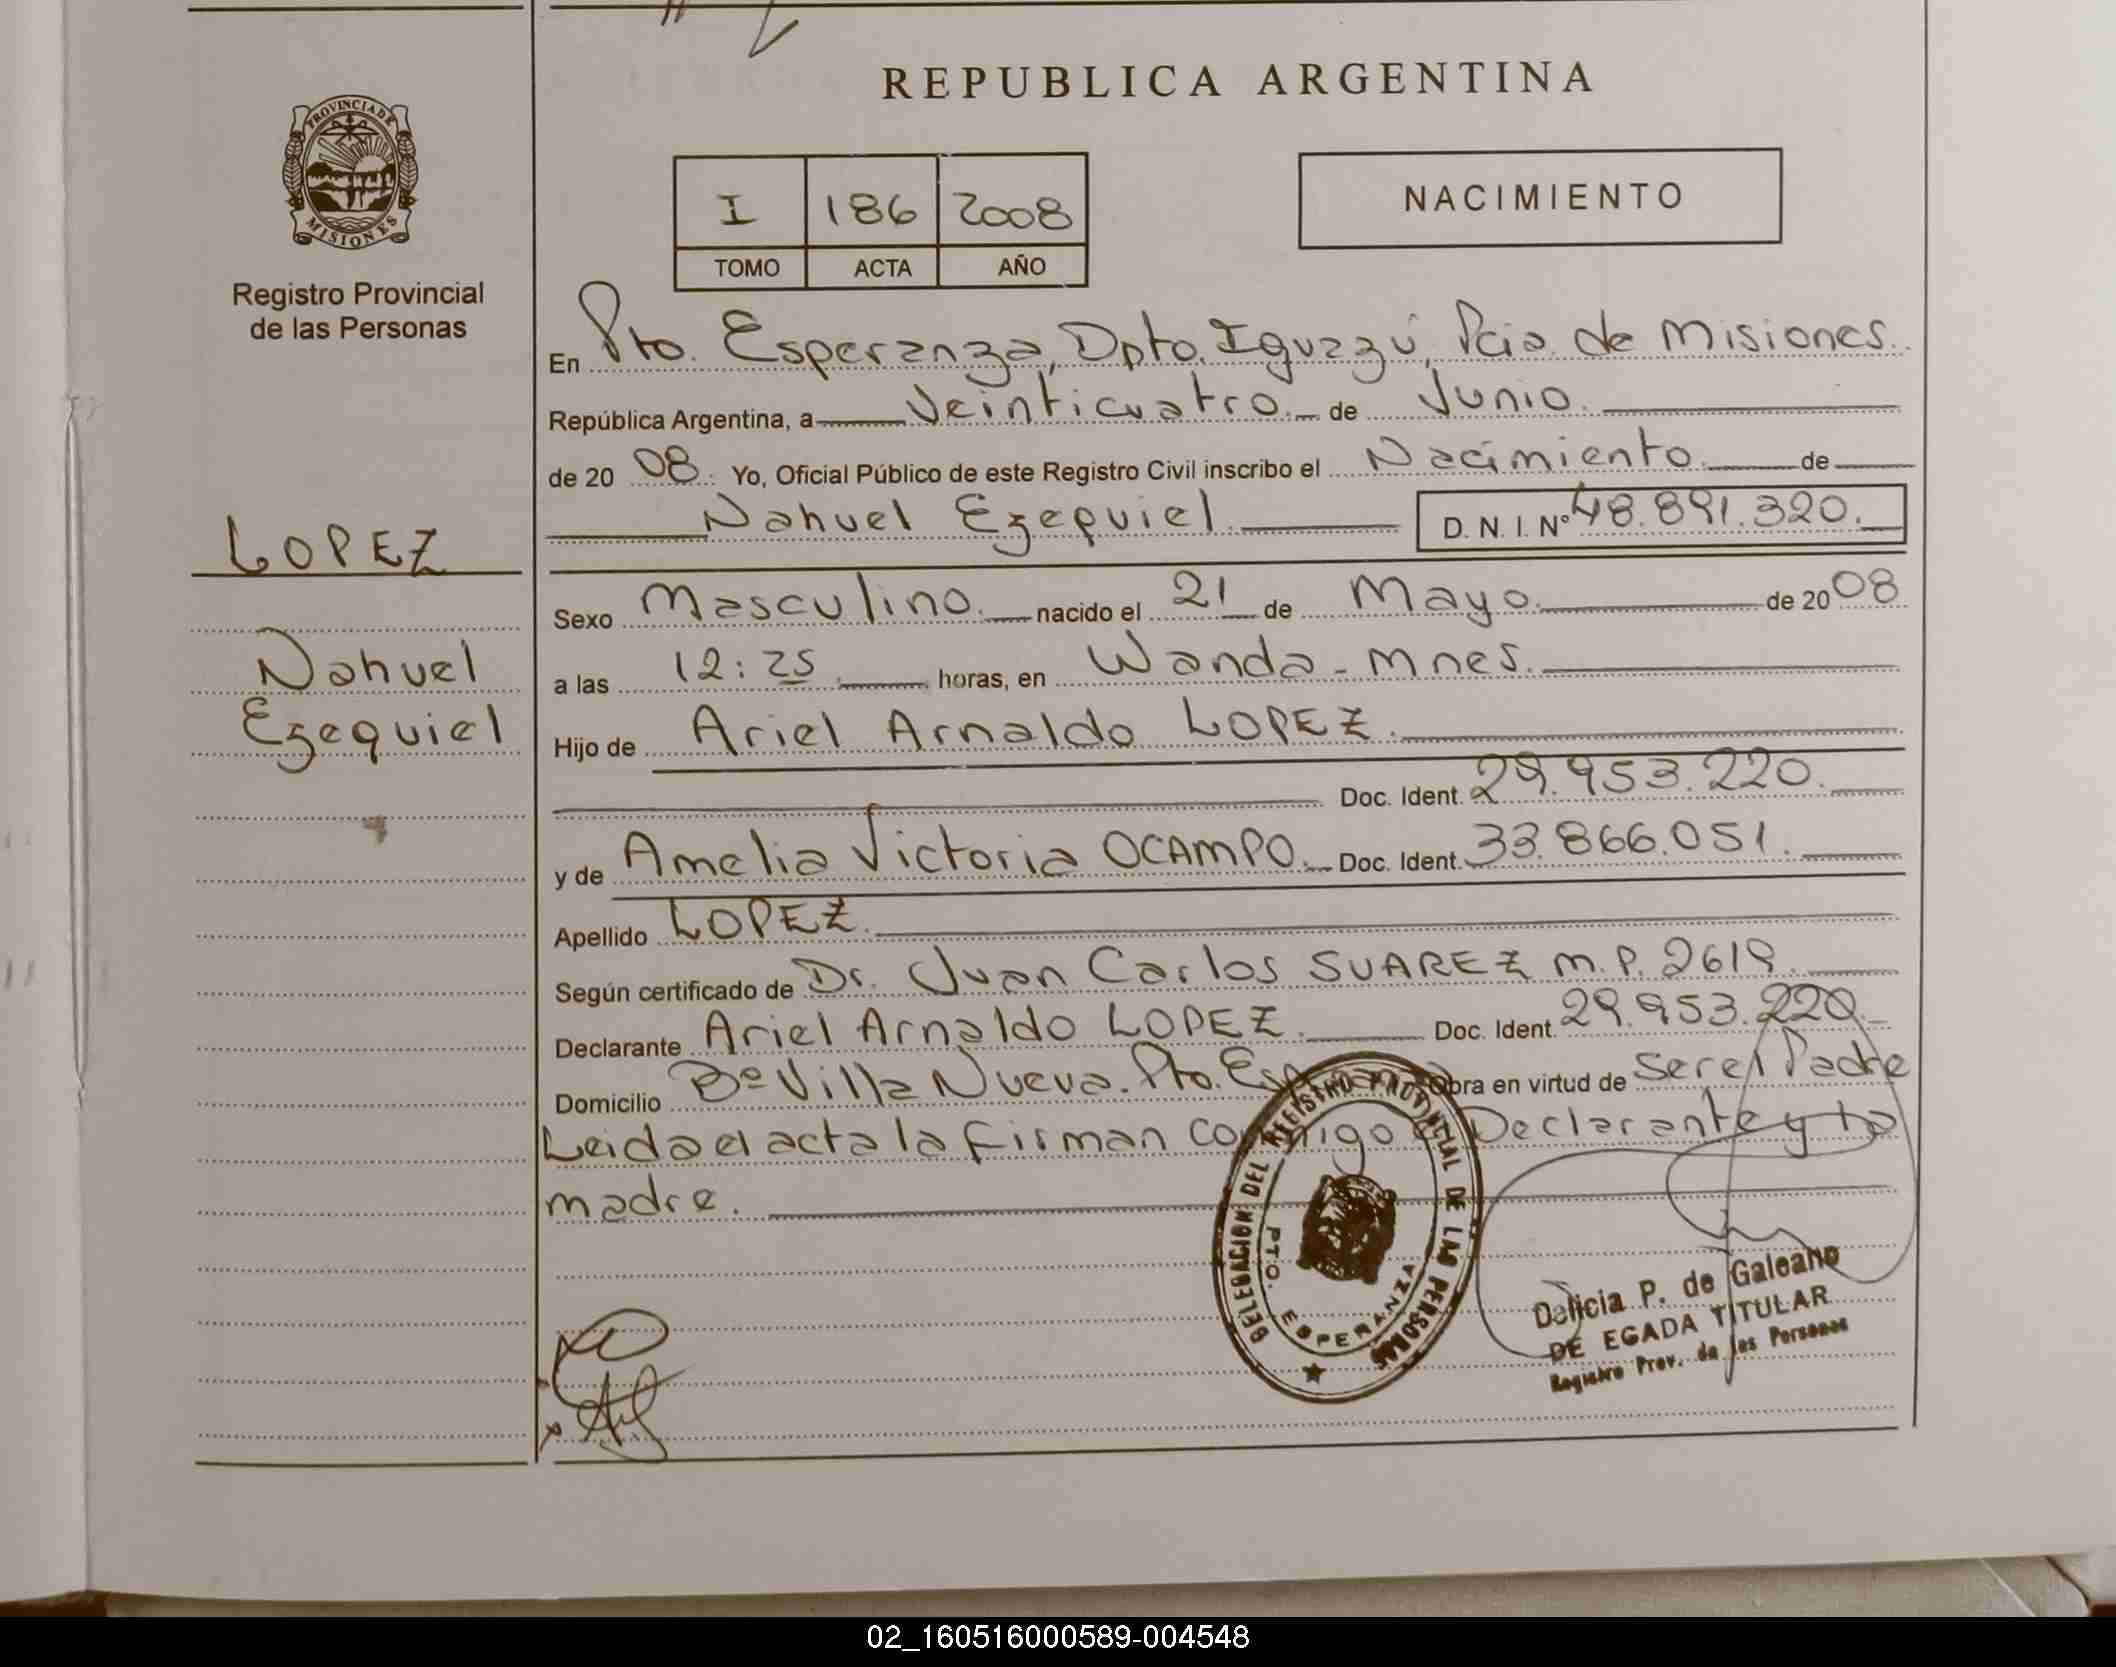 REPUBLICA ARGENTINA
PROVINCIA DE
MISIONES
Registro Provincial
de las Personas
I 186 2008
TOMO ACTA AÑO
NACIMIENTO
En Pto. Esperanza, Dpto. Iguazú, Pcia. de Misiones.
República Argentina, a Veinticuatro. de Junio.
de 20 08. Yo, Oficial Público de este Registro Civil inscribo el Nacimiento. de
Nahuel Ezequiel. D. N. I. N° 48.891.320.
LOPEZ
Nahuel
Ezequiel
Sexo Masculino. nacido el 21 de Mayo. de 20 08
a las 12:25 horas, en Wanda - Mnes.
Hijo de Ariel Arnaldo LOPEZ.
Doc. Ident. 29.953.220.
y de Amelia Victoria OCAMPO. Doc. Ident. 33.866.051.
Apellido LOPEZ.
Según certificado de Dr. Juan Carlos SUAREZ M.P. 2619.
Declarante Ariel Arnaldo LOPEZ. Doc. Ident. 29.953.220.
Domicilio B° Villa Nueva. Pto. Obra en virtud de ser el Padre
Leida el acta la firman Declarante y la
madre.
DELEGACION DEL REGISTRO PROVINCIAL DE LAS PERSONAS
PTO. ESPERANZA
Delicia P. de Galeano
DE EGADA TITULAR
Registro Prov. de las Personas
02_160516000589-004548